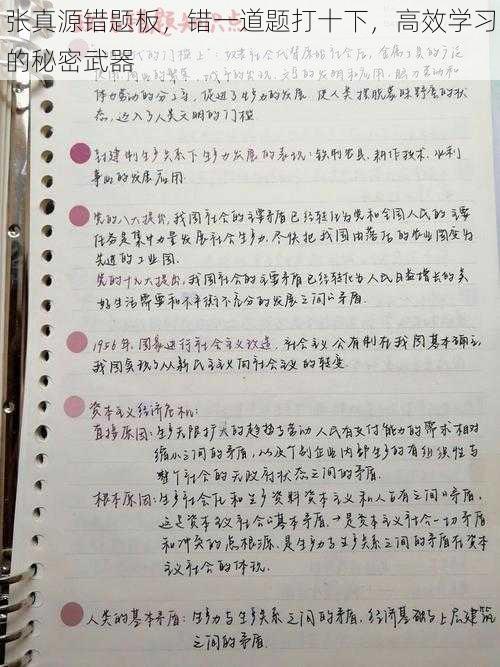 张真源错题板，错一道题打十下，高效学习
的秘密武器
体力劳动的分工等，促进了生产力的发展，使人类摆脱蒙昧野蛮的状
态，迈入了人类文明的门槛
封建制生产关系下生产力发展的表现：铁制农具、耕作技术、水利
事业的发展应用
党的八大提出，我国社会的主要矛盾已经转化为党和全国人民的主要
任务是集中力量发展社会生产力，尽快把我国由落后的农业国变为
先进的工业国.
党的十九大提出，我国社会的主要矛盾已经转化为人民日益增长的美
好生活需要和不平衡不充分的发展之间的矛盾.
1956年,国家进行社会主义改造，社会主义公有制在我国基本确立，
我国实现了从新民主主义向社会主义的转变.
资本主义经济危机：
直接原因：生产无限扩大的趋势与劳动人民有支付能力的需求相对
缩小之间的矛盾，以及个别企业内部生产的有组织性与
整个社会的无政府状态之间的矛盾.
根本原因：生产社会化和生产资料资本主义私人占有之间的矛盾，
这是资本主义社会的基本矛盾→是资本主义社会一切矛盾
和冲突的总根源，是生产力与生产关系之间的矛盾在资本
主义社会的体现.
人类的基本矛盾：生产力与生产关系之间的矛盾，经济基础与上层建筑
之间的矛盾.